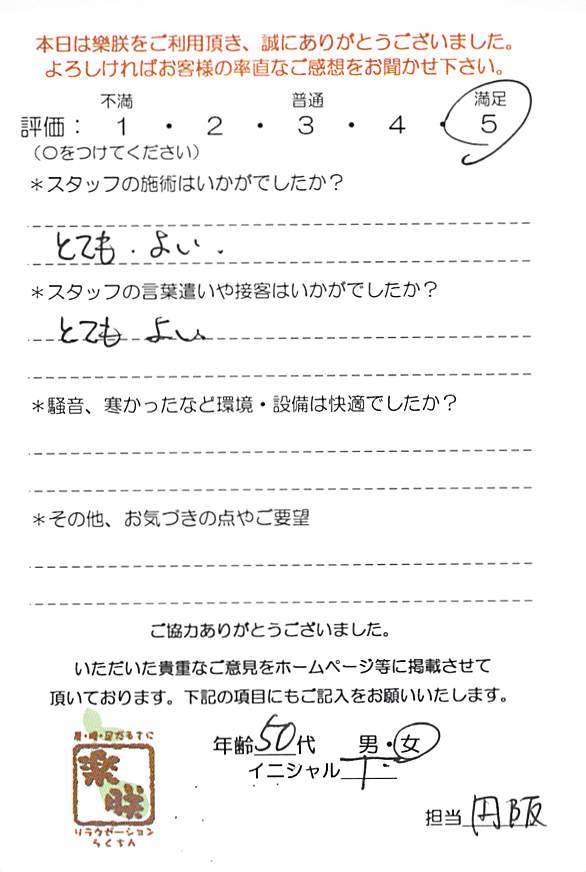 本日は樂朕をご利用頂き、誠にありがとうございました。
よろしければお客様の率直なご感想をお聞かせ下さい。
不満 普通 満足
評価： 1 ・ 2 ・ 3 ・ 4 ・ 5
（〇をつけてください）
＊スタッフの施術はいかがでしたか？
とても．よい．
＊スタッフの言葉遣いや接客はいかがでしたか？
とても よい
＊騒音、寒かったなど環境・設備は快適でしたか？
＊その他、お気づきの点やご要望
ご協力ありがとうございました。
いただいた貴重なご意見をホームページ等に掲載させて
頂いております。下記の項目にもご記入をお願いいたします。
年齢50代 男・女
イニシャル
楽朕
リラクゼーション
らくちん
担当